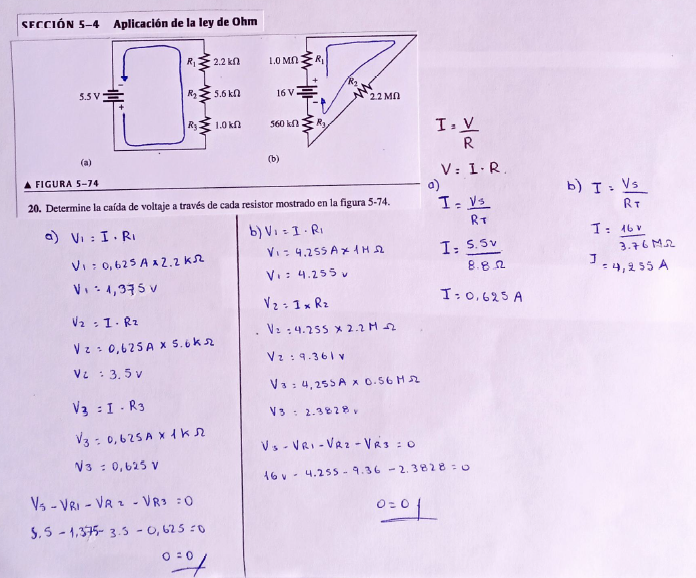 SECCIÓN 5–4 Aplicación de la ley de Ohm
R1 2.2 kΩ
5.5 V
−
+
R2 5.6 kΩ
R3 1.0 kΩ
(a)
1.0 MΩ R1
+
16 V
−
R2
2.2 MΩ
560 kΩ R3
(b)
▲ FIGURA 5-74
20. Determine la caída de voltaje a través de cada resistor mostrado en la figura 5-74.
I = V/R
V = I · R.
a)
I = Vs/RT
I = 5.5v/8.8 Ω
I = 0,625 A
b) I = Vs/RT
I = 16 v/3.76 MΩ
I = 4,255 A
a) V1 = I · R1
V1 = 0,625 A x 2.2 kΩ
V1 = 1,375 v
V2 = I · R2
V2 = 0,625 A x 5.6 kΩ
V2 = 3.5 v
V3 = I · R3
V3 = 0,625 A x 1 k Ω
V3 = 0,625 v
Vs - VR1 - VR2 - VR3 = 0
5.5 - 1,375 - 3.5 - 0,625 = 0
0 = 0
b) V1 = I · R1
V1 = 4.255 A x 1 M Ω
V1 = 4.255 v
V2 = I x R2
V2 = 4.255 x 2.2 M Ω
V2 = 9.361 v
V3 = 4,255 A x 0.56 M Ω
V3 = 2.3828 v
Vs - VR1 - VR2 - VR3 = 0
16 v - 4.255 - 9.36 - 2.3828 = 0
0 = 0